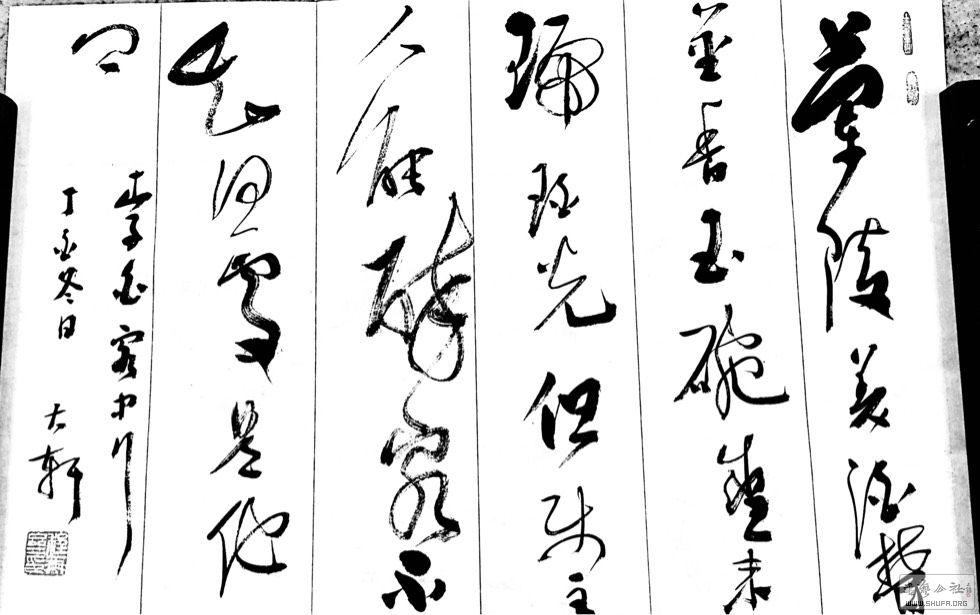 蘭陵美酒鬱
金香玉碗盛来
琥珀光但使主
人能醉客不
知何處是他
鄉
李白客中行
丁酉冬日 大軒
WWW.SHUFA.ORG